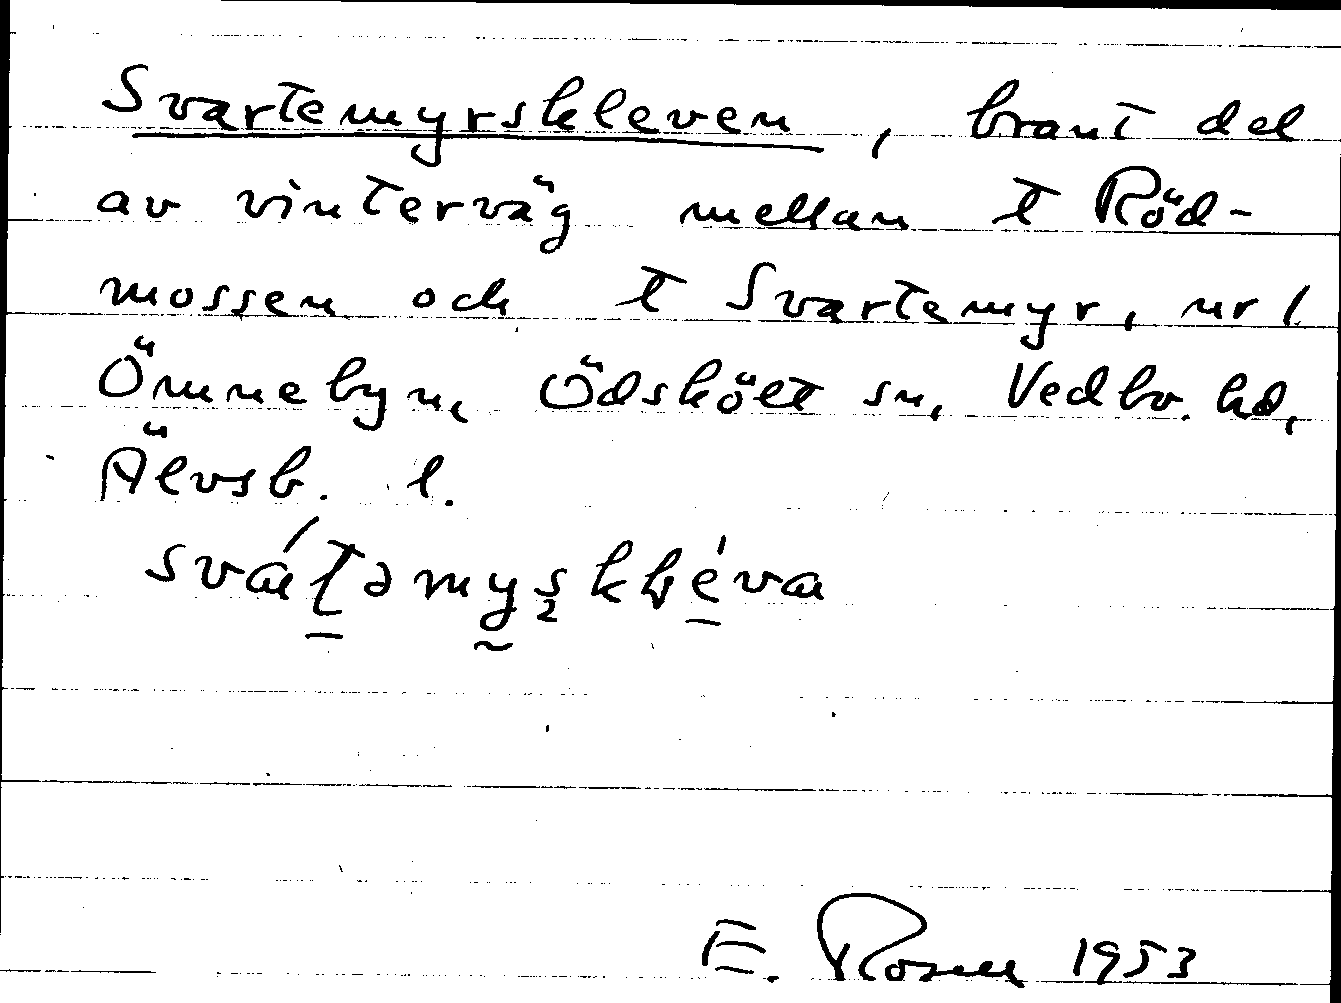 Svartemyrskleven, brant del
av vinterväg mellan t Röd-
mossen och t Svartemyr, nr 1
Ömmebyn, Ödskölt sn, Vedbo hd,
Älvsb. l.
E. Rosell 1953